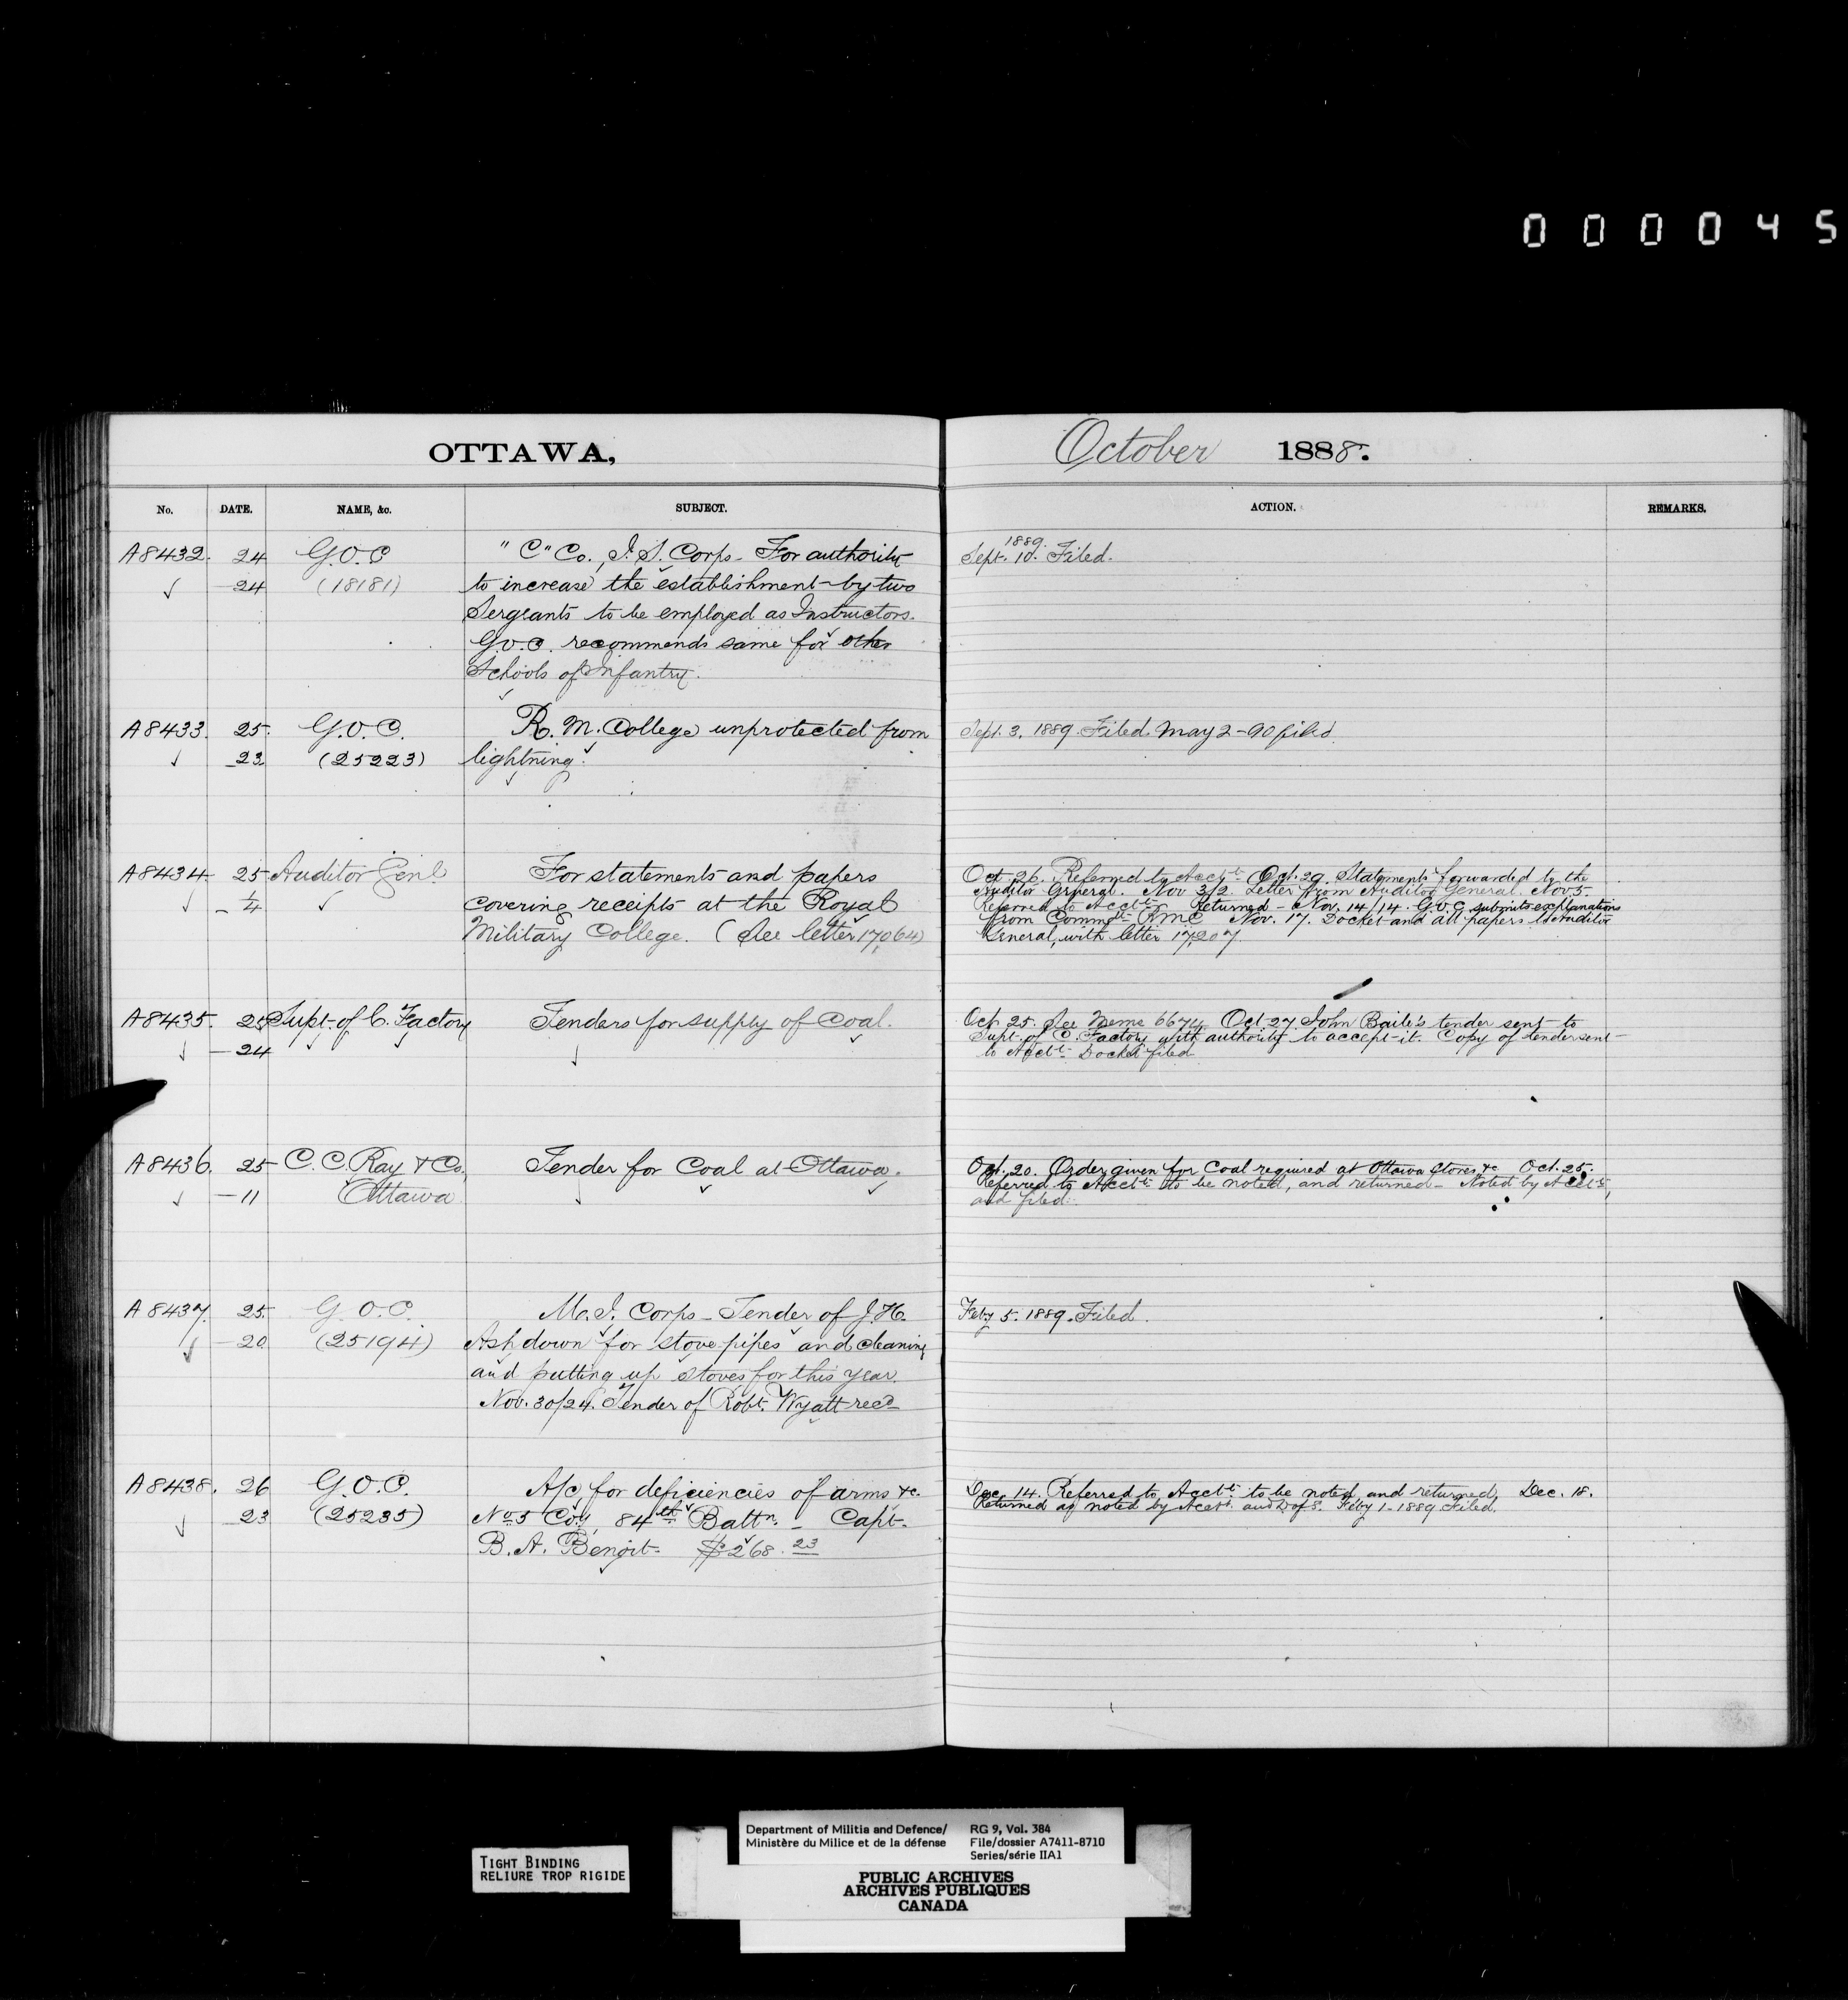 0 0 0 0 4 5
OTTAWA,
October 1888.
No. DATE. NAME, &c. SUBJECT. ACTION. REMARKS.
A8432. 24 G.O.C "C" Co., I.S. Corps - For authority
24 (18181) to increase the establishment by two
Sergeants to be employed as Instructors.
G.O.C. recommends same for other
Schools of Infantry.
1889.
Sept. 10. Filed.
A8433. 25. G.O.C. R. M. College unprotected from
23 (25223) lightning.
Sept. 3, 1889. Filed. May 2-90 filed
A8434 25 Auditor Genl. For statements and papers
1/4 covering receipts at the Royal
Military College. (See letter 17,064)
Oct. 26. Referred to Acctt. Oct. 29. Statements forwarded to the
Auditor General. Nov 3/2. Letter from Auditor General. Nov 5
Referred to Acctt. Returned - Nov. 14/14. G.O.C. submits explanations
from Commdt. RMC Nov. 17. Docket and all papers to Auditor
General, with letter 17207.
A8435. 25 Supt. of C. Factory Tenders for supply of Coal.
24
Oct. 25. See Memo 6674. Oct 27. John Baile's tender sent to
Supt. of C. Factory with authority to accept it. Copy of tender sent
to Acctt. Docket filed
A8436. 25 C. C. Ray & Co., Tender for Coal at Ottawa.
11 Ottawa
Oct. 20. Order given for Coal required at Ottawa Stores &c Oct. 25.
Referred to Acctt. to be noted, and returned - Noted by Acctt.,
and filed.
A8437. 25. G.O.C. M.I. Corps - Tender of J.H.
20 (25194) Ashdown for stove pipes and cleaning
and putting up stoves for this year.
Nov. 30/24. Tender of Robt. Wyatt recd
Feby 5. 1889. Filed.
A8438. 26 G.O.C. A/c for deficiencies of arms &c.
23 (25235) No 5 Coy, 84th Battn. - Capt.
B. A. Benoit. $268.23
Dec. 14. Referred to Acctt. to be noted and returned. Dec. 18.
Returned as noted by Acctt. and D of S. Feby 1-1889 Filed.
TIGHT BINDING
RELIURE TROP RIGIDE
Department of Militia and Defence/
Ministère du Milice et de la défense
RG 9, Vol. 384
File/dossier A7411-8710
Series/série IIA1
PUBLIC ARCHIVES
ARCHIVES PUBLIQUES
CANADA